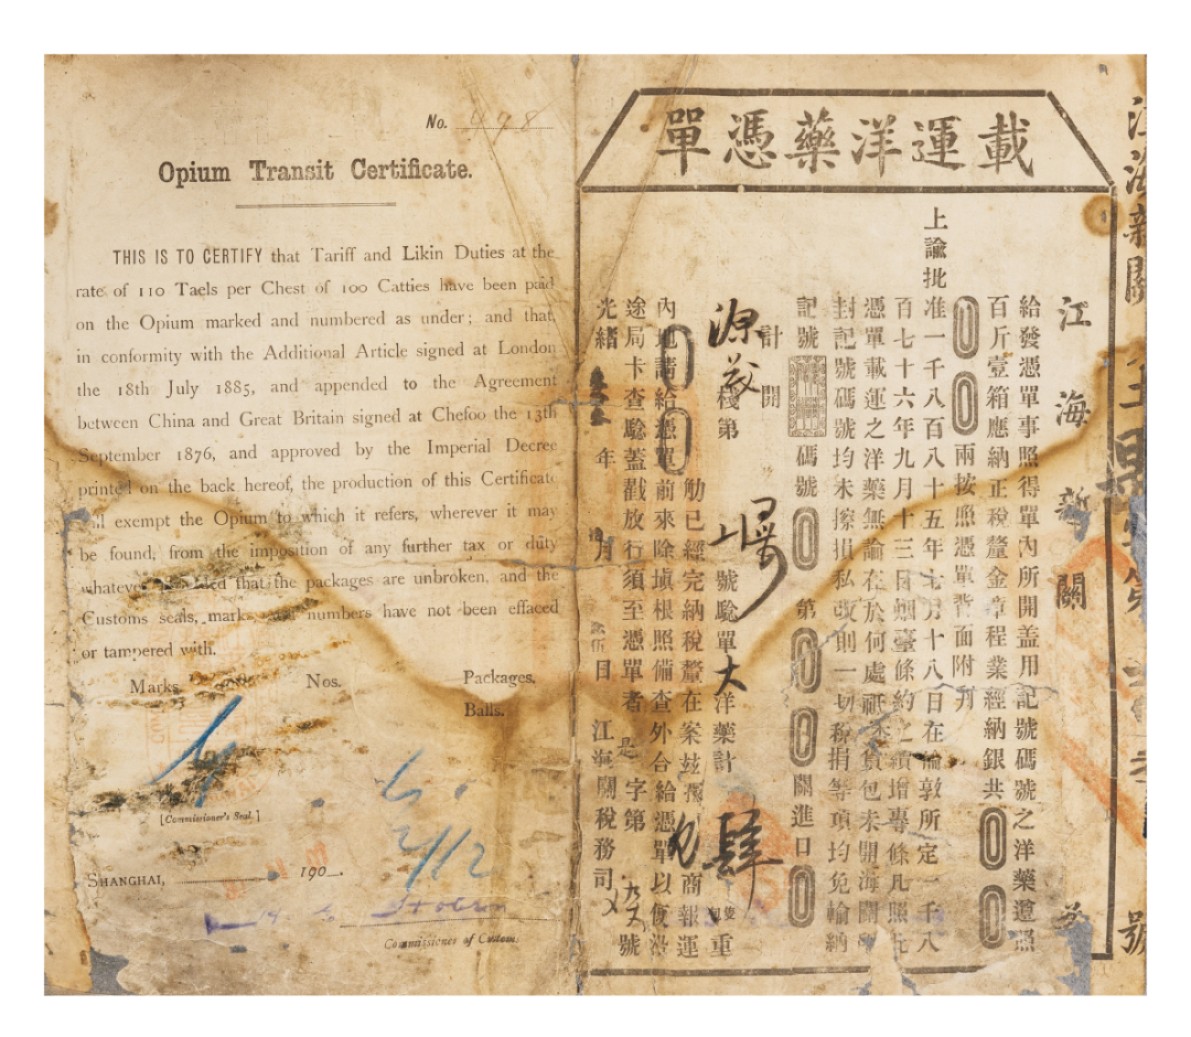 No. 498
Opium Transit Certificate.
THIS IS TO CERTIFY that Tariff and Likin Duties at the
rate of 110 Taels per Chest of 100 Catties have been paid
on the Opium marked and numbered as under; and that,
in conformity with the Additional Article signed at London
the 18th July 1885, and appended to the Agreement
between China and Great Britain signed at Chefoo the 13th
September 1876, and approved by the Imperial Decree
printed on the back hereof, the production of this Certificate
will exempt the Opium to which it refers, wherever it may
be found, from the imposition of any further tax or duty
whatever, provided that the packages are unbroken, and the
Customs seals, marks, and numbers have not been effaced
or tampered with.
Marks. Nos. Packages.
Balls.
[Commissioner's Seal.]
SHANGHAI, 190 .
Commissioner of Customs.
載運洋藥憑單
江海新關
江海新關 為
給發憑單事照得單內所開蓋用記號碼號之洋藥遵照
百斤壹箱應納正稅釐金章程業經納銀共
兩按照憑單背面附刊
上諭批准一千八百八十五年七月十八日在倫敦所定一千八
百七十六年九月十三日烟臺條約之續增專條凡照此
憑單載運之洋藥無論在於何處祇係貨包未開海關
封記號碼號均未擦損私改則一切稅捐等項均免輸納
記號 碼號 第 關進口
計開
源茂棧第 號驗單大洋藥計 肆 重
觔已經完納稅釐在案茲據 商報運
內地請給憑單前來除填根照備查外合給憑單以便沿
途局卡查驗蓋戳放行須至憑單者 字第 號
光緒 年 月 日 江海關稅務司